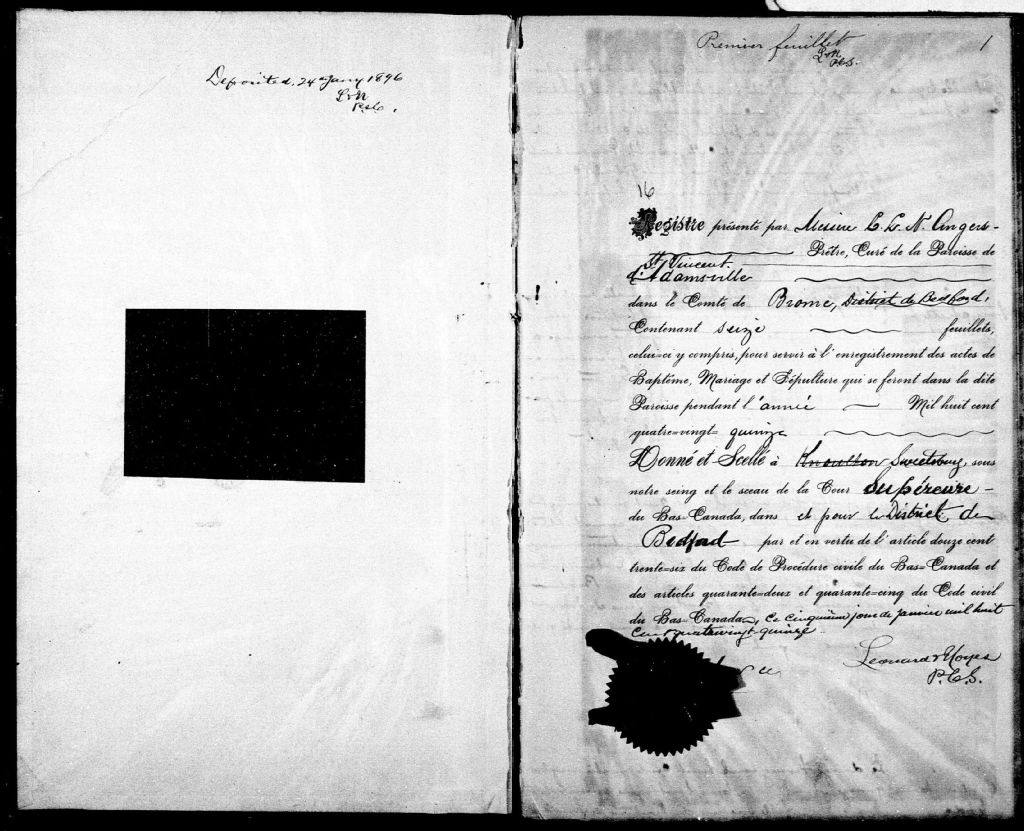 Deposited, 24th Jany 1896
L&N
P.S.C.
Premier feuillet
1
L&N
P.C.S.
16
Registre présenté par Messire L. L. N. Angers
Prêtre, Curé de la Paroisse de
St Vincent
d'Adamsville
dans le Comté de Brome, District de Bedford,
Contenant seize feuillets,
celui-ci y compris, pour servir à l'enregistrement des actes de
Baptême, Mariage et Sépulture qui se feront dans la dite
Paroisse pendant l'année Mil huit cent
quatre-vingt-quinze
Donné et Scellé à Knowlton Sweetsburg, sous
notre seing et le sceau de la Cour Supérieure
du Bas-Canada, dans et pour le District de
Bedford par et en vertu de l'article douze cent
trente-six du Code de Procédure civile du Bas-Canada et
des articles quarante-deux et quarante-cinq du Code civil
du Bas-Canada, ce cinquième jour de janvier mil huit
cent quatrevingt quinze.
Leonard & Noyes
P.C.S.